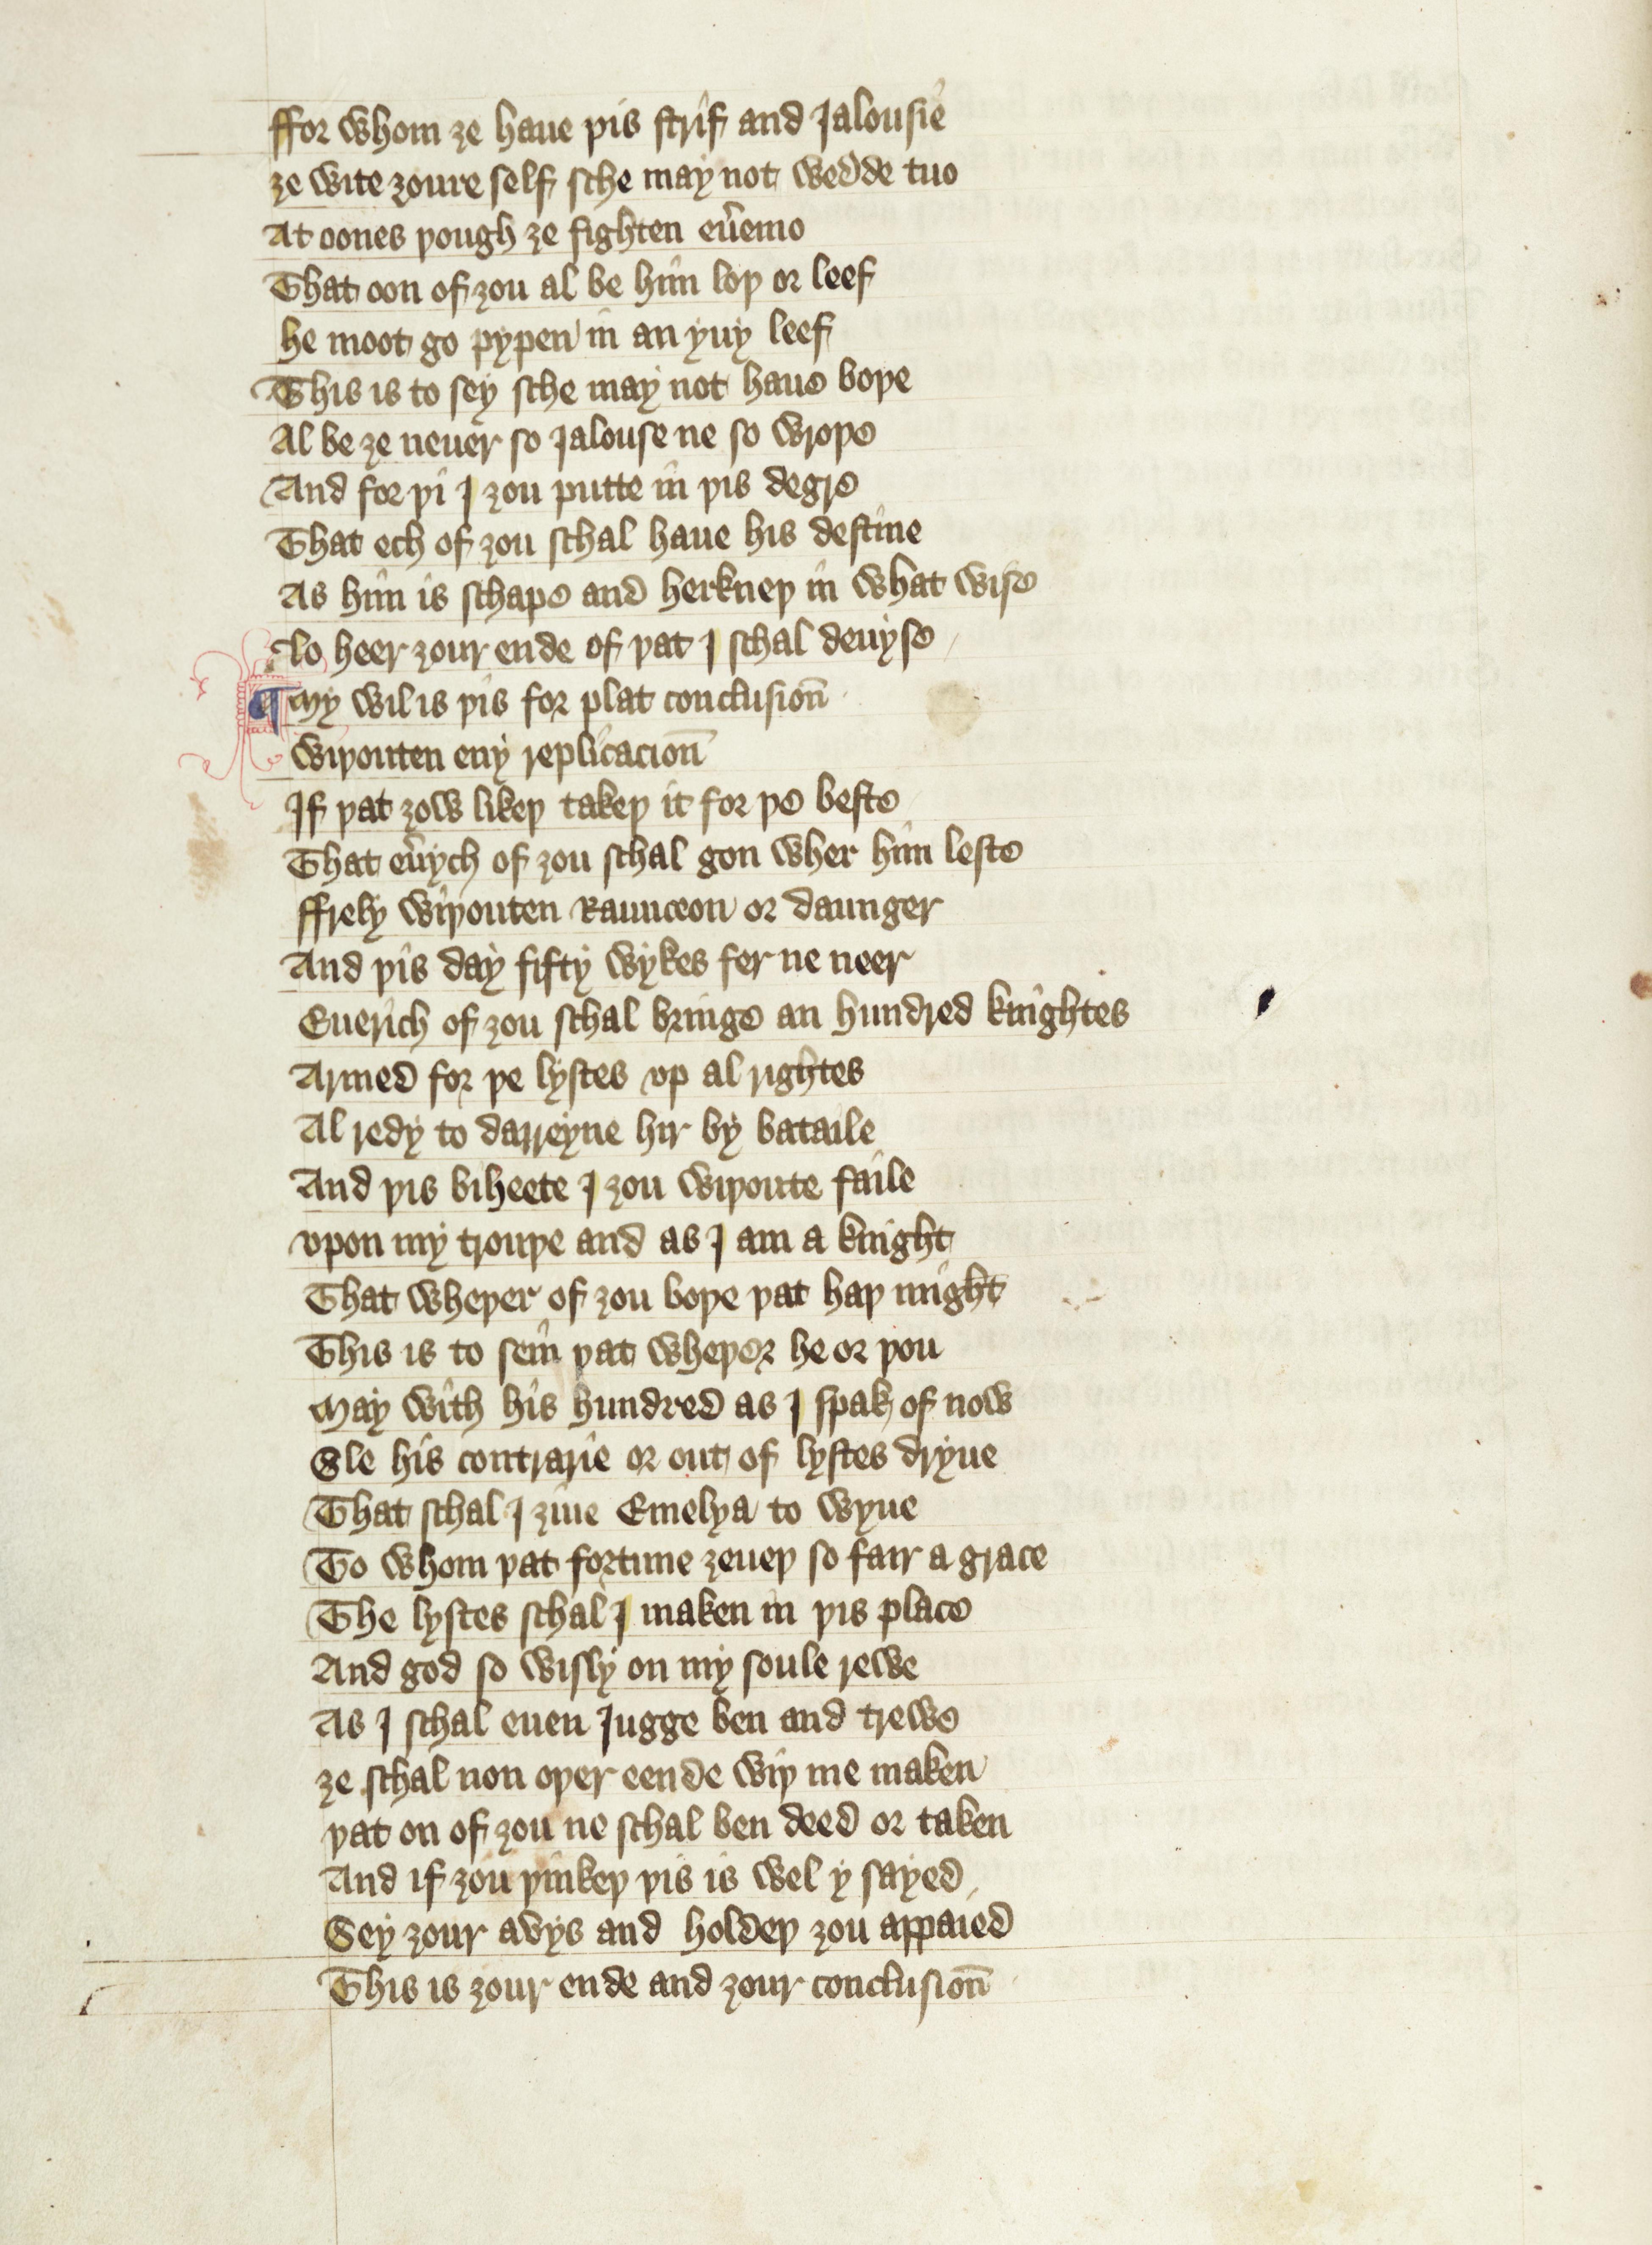 ffor whom ȝe haue þis strif and Jalousie
ȝe wite ȝoure self sche may not wedde tuo
At oones þough ȝe fighten eũemo
That oon of ȝou al be him loþ or leef
he moot go pypen in an yuy leef
This is to sey sche may not haue boþe
Al be ȝe neuer so Jalouse ne so wroþe
And for þi I ȝou putte in þis degre
That ech of ȝou schal haue his destine
As him is schape and herkneþ in what wise
lo heer ȝour ende of þat I schal deuyse
¶ My wil is þis for plat conclusioñ
wiþouten eny replicacioñ
If þat ȝow likeþ takeþ it for þe beste
That eũych of ȝou schal gon wher him leste
ffrely wiþouten Raunceon or daunger
And þis day fifty wykes fer ne neer
Euerich of ȝou schal bringe an hundred knightes
Armed for þe lystes vp al rightes
Al redy to darreyne hir by bataile
And þis biheete I ȝou wiþoute faile
vpon my trouþe and as I am a knight
That wheþer of ȝou boþe þat haþ might
This is to sein þat wheþer he or þou
May with his hundred as I spak of now
Sle his contrarie or out of lystes dryue
That schal I ȝiue Emelya to wyue
To whom þat fortune ȝeueþ so fair a grace
The lystes schal I maken in þis place
And god so wisly on my soule rewe
As I schal euen Jugge ben and trewe
ȝe schal non oþer eende wiþ me maken
þat on of ȝou ne schal ben deed or taken
And if ȝou þinkeþ þis is wel y sayed
Sey ȝour avys and holdeþ ȝou appaied
This is ȝour ende and ȝour conclusioñ